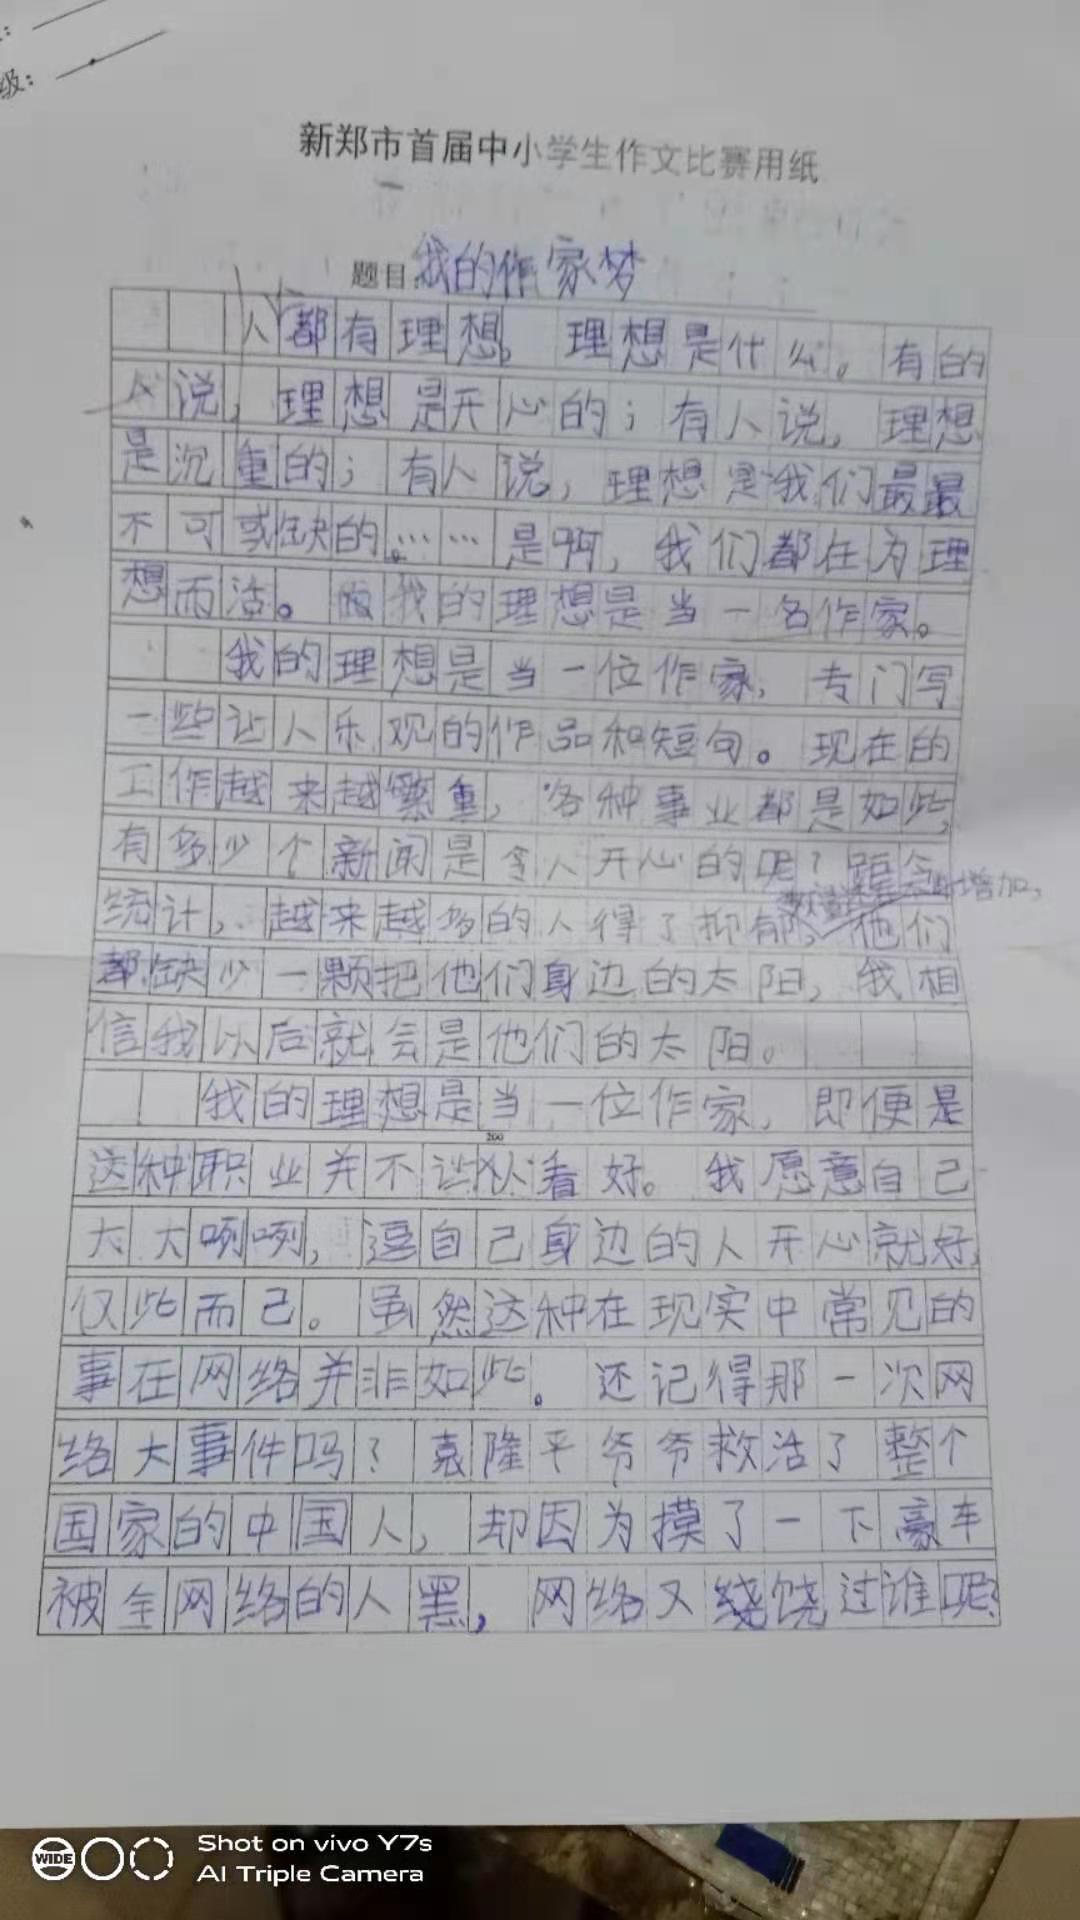 级:
新郑市首届中小学生作文比赛用纸
题目 我的作家梦
人都有理想。理想是什么。有的
人说,理想是开心的;有人说,理想
是沉重的;有人说,理想是我们最最
不可或缺的……是啊,我们都在为理
想而活。我的理想是当一名作家。
我的理想是当一位作家,专门写
一些让人乐观的作品和短句。现在的
工作越来越繁重,各种事业都是如此,
有多少个新闻是令人开心的呢?
增加,
统计,越来越多的人得了抑郁,他们
都缺少一颗把他们身边的太阳,我相
信我以后就会是他们的太阳。
我的理想是当一位作家,即便是
200
这种职业并不让人看好。我愿意自己
大大咧咧,逗自己身边的人开心就好,
仅此而已。虽然这种在现实中常见的
事在网络并非如此。还记得那一次网
络大事件吗?袁隆平爷爷救活了整个
国家的中国人,却因为摸了一下豪车
被全网络的人黑,网络又绕饶过谁呢?
WIDE
Shot on vivo Y7s
AI Triple Camera